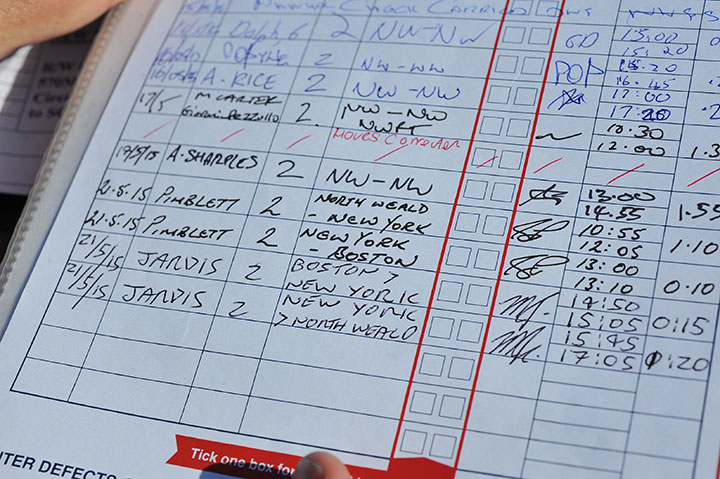 15:00
15:20
2 NW-NW GD
16.20
2 NW-NW POP 16.45
16/05/15 A. RICE 2 NW-NW 17:00
17:20
17/5 M CARTER 2. NW-NW 10.30
NWFT 12:00 1.3
Moves Correction
19/5/15 A. SHARPLES 2 NW-NW 13:00
14.55 1.55
21.5.15 PIMBLETT 2 NORTH WEALD 10:55
- NEW YORK 12:05 1:10
21.5.15 PIMBLETT 2 NEW YORK 13:00
- BOSTON 13:10 0:10
21/5/15 JARVIS 2 BOSTON > 14:50
NEW YORK 15:05 0:15
21/5/15 JARVIS 2 NEW YORK 15:45
> NORTH WEALD 17:05 0:20
Tick one box for
NTER DEFECTS